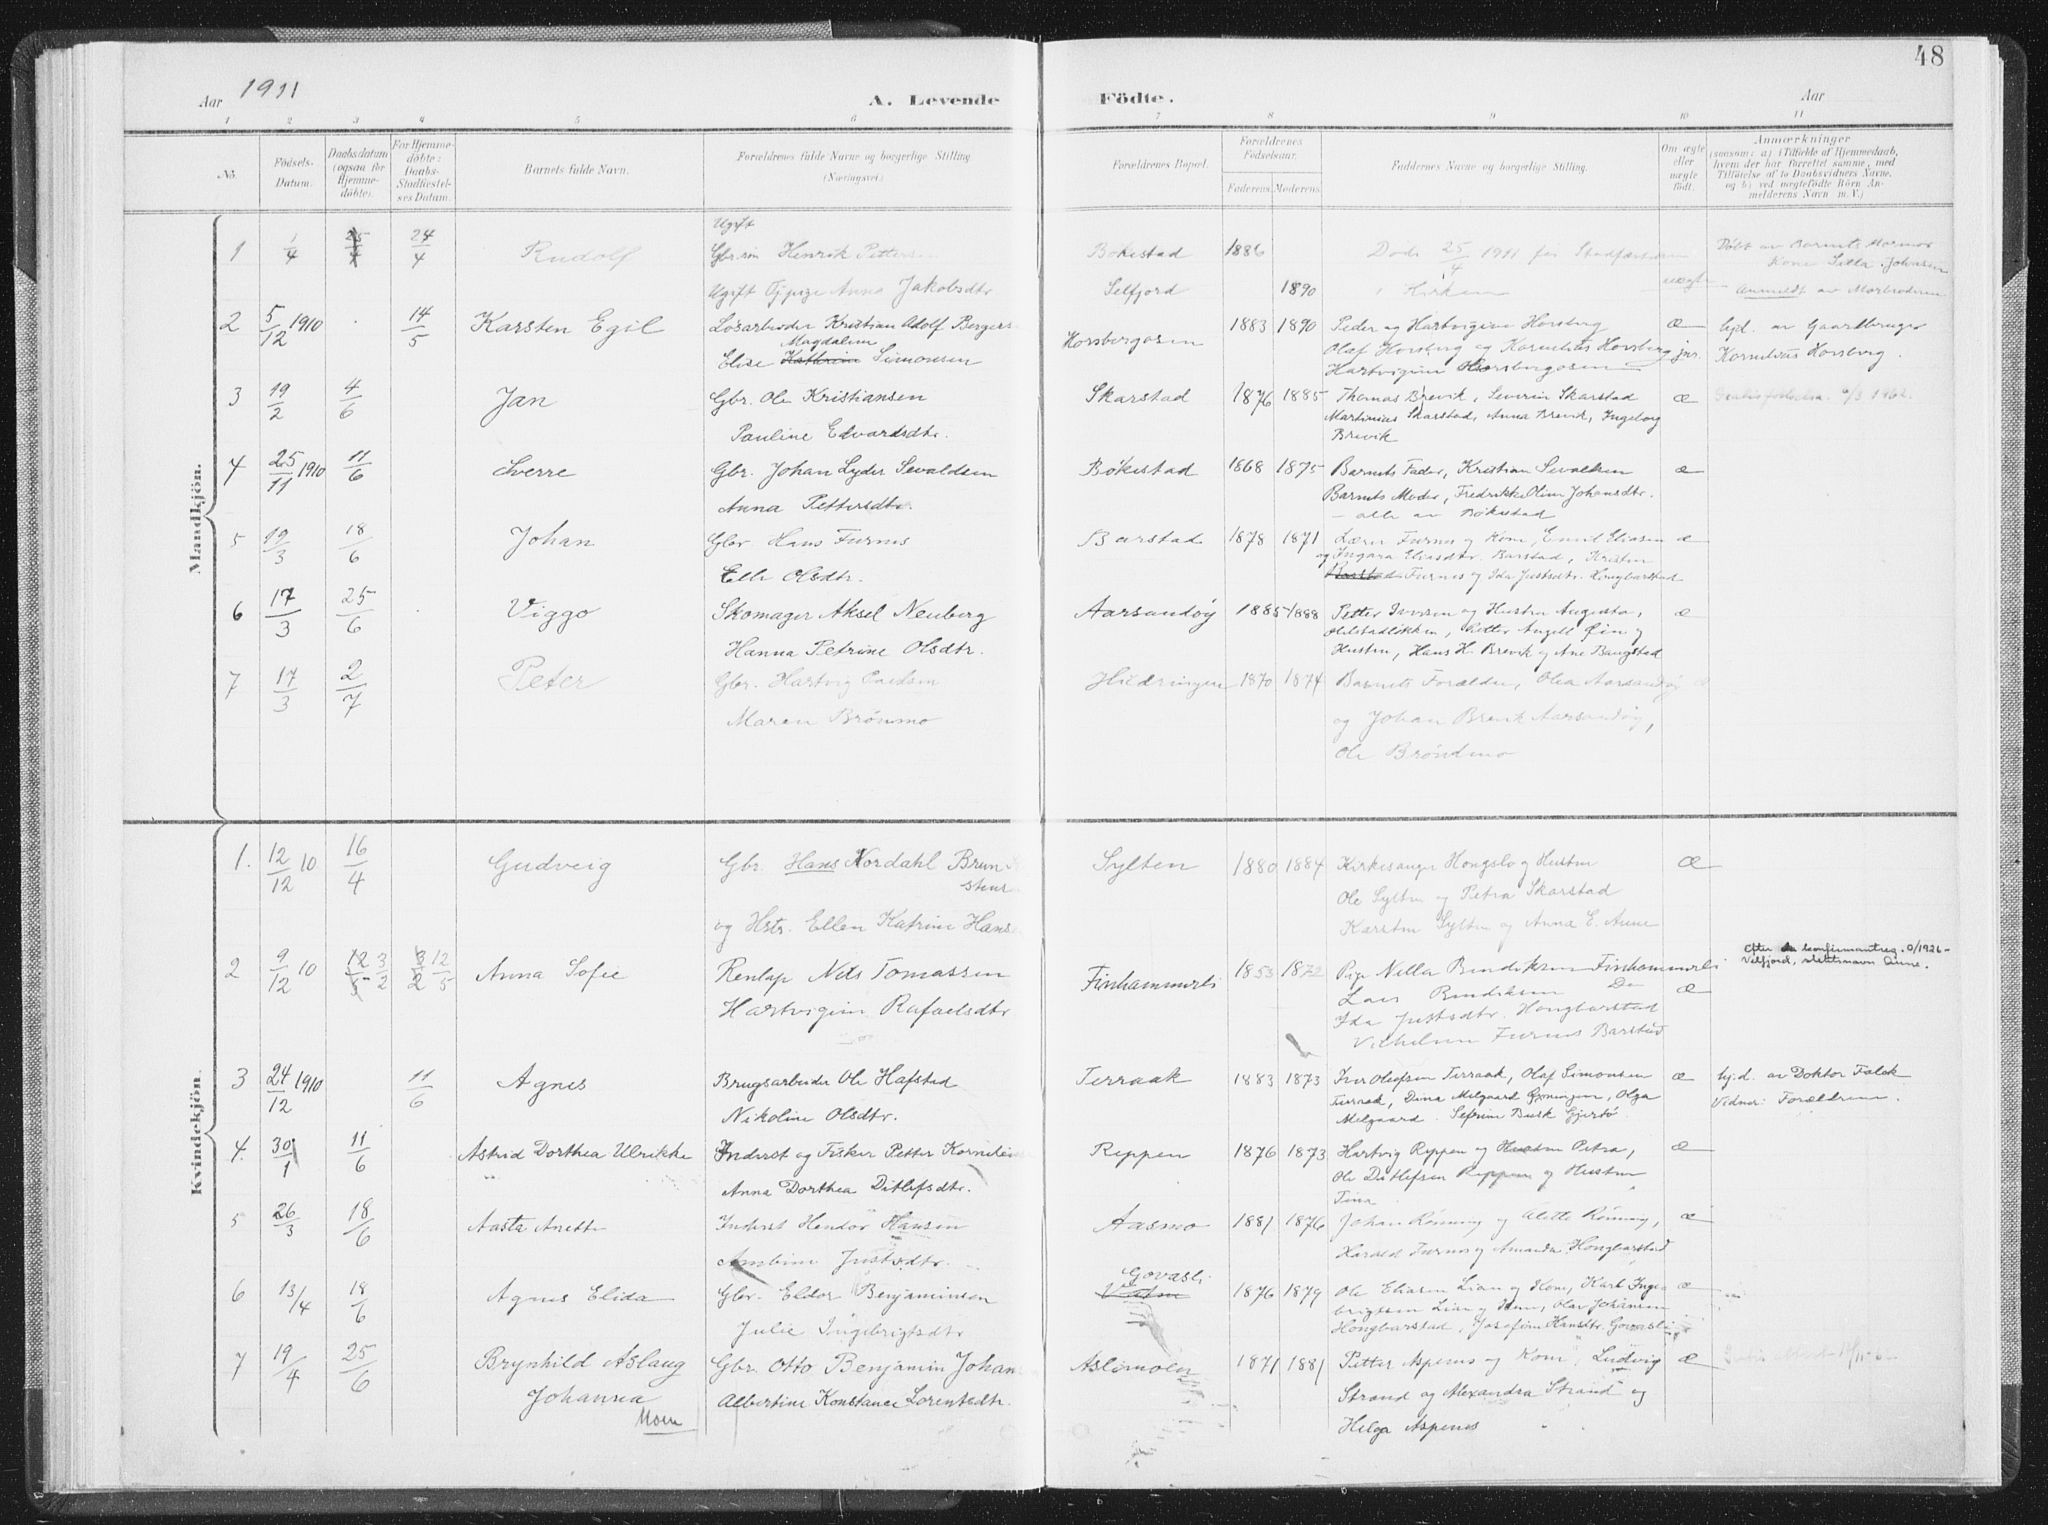 48
Aar 1911
A. Levende Födte.
Aar
1 2 3 4 5 6 7 8 9 10 11
No.
Födsels-Datum.
Daabsdatum (ogsaa for Hjemmedöbte).
For Hjemmedöbte: Daabs-Stadfæstelses Datum.
Barnets fulde Navn.
Forældrenes fulde Navne og borgerlige Stilling (Næringsvei).
Forældrenes Bopæl.
Forældrenes Födselsaar.
Faderens. Moderens.
Faddernes Navne og borgerlige Stilling.
Om ægte eller uægte födt.
Anmærkninger
(saasom: a) i Tilfælde af Hjemmedaab, hvem der har forrettet samme, med Tilföielse af to Daabsvidners Navne, og b) ved uægtefödte Börn Anmelderens Navn m. V.)
Mandkjön.
Ugift
1 1/4 25/4 24/4 Rudolf Gbr.sön Henrik Petters Bökestad 1886 Döde 25/4 1911 før Stadfæstelsen Döbt av Barnets Mormor
i Kirken Kone Johansen
Ugift Pige Anna Jakobsdtr Selfjord 1890 uægte Anmeldt av Morbroderen
2 5/12 1910 14/5 Karsten Egil Løsarbeider Kristian Adolf Bergers Horsbergosen 1883 1890 Peder og Hartvigine Horsberg æ hjd. av Gaardbruger
Magdalene
Elise Kathrine Simonsen Olaf Horsberg og Kornelius Horsberg jnr. Kornelius Horsberg.
Hartvigine Horsbergosen
3 19/2 4/6 Jan Gbr. Ole Kristiansen Skarstad 1876 1885 Thomas Brevik, Severin Skarstad æ
Pauline Edvardsdtr. Martinius Skarstad, Anna Brevik, Ingeborg
Brevik
4 25/11 1910 11/6 Sverre Gbr. Johan Lyder Sevaldsen Bökestad 1868 1875 Barnets Fader, Kristian Sevaldsen æ
Anna Pettersdtr Barnets Moder, Fredrikke Oline Johansdtr.
– alle av Bökestad
5 19/3 18/6 Johan Gbr. Hans Furnes Barstad 1878 1871 Lærer Furnes og Kone, Emil Eliasen æ
Elli Olsdtr. og Ingara Eliasdtr. Barstad, Kristen
Barstad Furnes og Ida Justsdtr. Hongbarstad
6 17/3 25/6 Viggo Skomager Aksel Neuberg Aarsandöy 1885 1888 Petter Iversen og Hustru Augusta, æ
Hanna Petrine Olsdtr. Petter Angell Øien og
Hustru, Hans H. Brevik og Ane Baugstad
7 17/3 2/7 Peter Gbr. Hartvig Paulsen Hildringen 1870 1874 Barnets Forældre, Olea Aarsandöy æ
Maren Brönmo og Johan Brevik Aarsandöy,
Ole Bröndmo
Kvindekjön.
1. 12/12 10 16/4 Gudveig Gbr. Hans Nordahl Brun Sylten 1880 1884 Kirkesanger Hongslo og Hustru æ
Ole Sylten og Petra Skarstad
og Hstr. Ellen Katrine Hans Karsten Sylten og Anna E. Aune
2 9/12 10 12/5 3/2 3/2 12/5 Anna Sofie Renlap Nils Tomassen Finhammerli 1853 1872 Pige Nella Bendiksen Finhammerli æ Efter konfirmantreg. 0/1926 –
Velfjord, slektsnavn Aune.
Hartvigine Rafaelsdtr Lars Bendiksen Do
Ida Justsdtr. Hongbarstad
Vilhelm Furnes Barstad
3 24/12 1910 11/6 Agnes Brugsarbeider Ole Hafstad Terraak 1883 1873 Iver Olufsen Terraak, Olaf Simonsen æ hj.d. av Doktor Falck
Nikoline Olsdtr. Terraak, Dina Melgaard, Olga Vidner: Forældrene.
Melgaard. Busk Gjertö
4. 30/1 11/6 Astrid Dorthea Ulrikke Inderst og Fisker Petter Korneliu Reppen 1876 1873 Hartvig Reppen og Hustru Petra, æ
Anna Dorthea Ditlefsdtr. Ole Ditlefsen Reppen og Hustru
Tina
5 26/3 18/6 Aasta Anette Inderst Hansen Aasmo 1881 1876 Johan Rönning og Alette Rönning, æ
Ambine Justsdtr. Harald Furnes og Amanda Hongbarstad
6 13/4 18/6 Agnes Elida Gbr. Eldor Benjaminsen Govasli 1876 1879 Ole Eliasen Lian og Kone, Karl Inge- æ
Julie Ingebrigtsdtr brigtsen Lian og Kone, Olav Johansen
Hongbarstad, Josefine Hansdtr. Govasli
7 19/4 25/6 Brynhild Aslaug Gbr. Otto Benjamin Johan Aslimoen 1871 1881 Petter Aspenes og Kone, Ludvig æ
Johanna Albertine Konstance Lorentsdtr. Strand og Alexandra Strand og
Moen Helga Aspenes